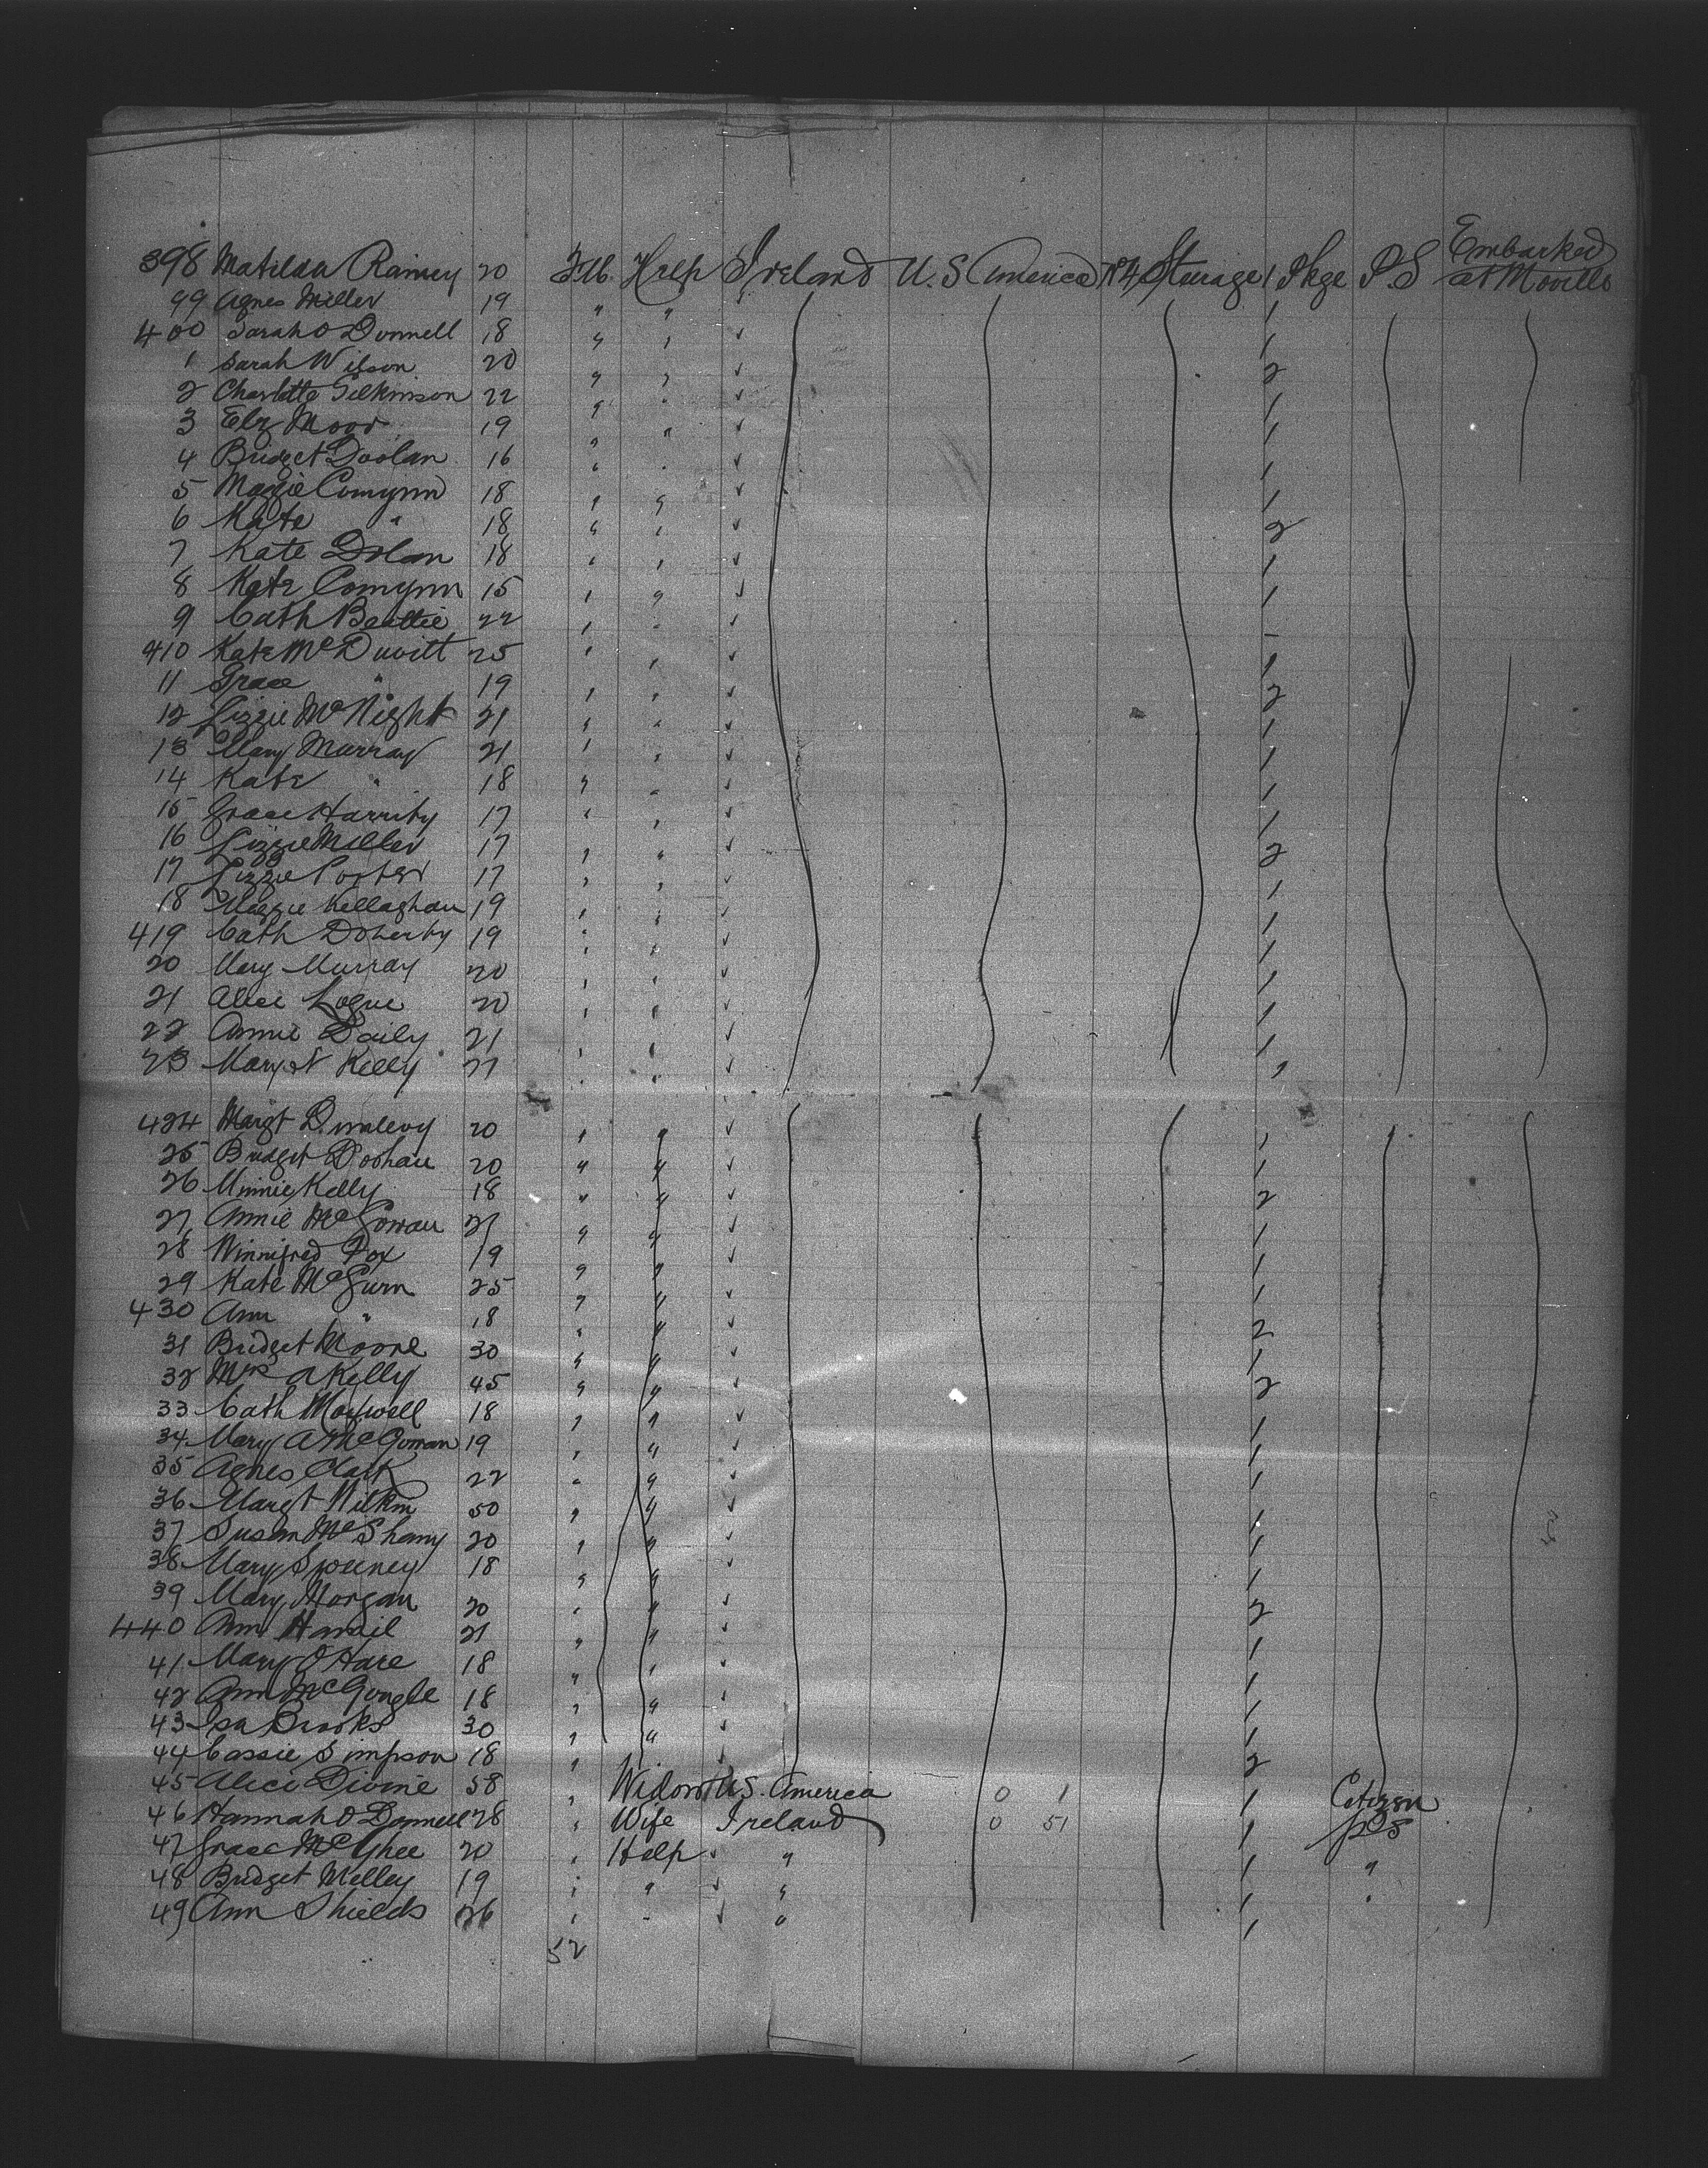 398 Matilda Rainey 20 F.M. Help Ireland U.S America Nº4 Sturage 1 Pkge P.S Embarked at Moville
99 Agnes Miller 19 " " 1
400 Sarah O Donnell 18 " " ✓ 1
1 Sarah Wilson 20 " " ✓ 2
2 Charlotte Gilkinson 22 " " ✓ 1
3 Elz Moor 19 " " ✓ 1
4 Bridget Doolan 16 " " ✓ 1
5 Maggie Comynn 18 " " ✓ 1
6 Kate " 18 " " ✓ 2
7 Kate Dolan 18 " " ✓ 1
8 Kate Comynn 15 " " ✓ 1
9 Cath Beattie 22 " " -
410 Kate McDuvitt 25 " " ✓ 1
11 Grace " 19 " " ✓ 2
12 Lizzie McNight 21 " " ✓ 1
13 Mary Murray 21 " " ✓ 1
14 Kate " 18 " " ✓ 1
15 Grace Harrity 17 " " ✓ 1
16 Lizzie Miller 17 " " ✓ 2
17 Lizzie Porter 17 " " ✓ 1
18 Maggie Kellaghan 19 " " ✓ 1
419 Cath Doherty 19 " " ✓ 1
20 Mary Murray 20 " " ✓ 1
21 Alice Logue 20 " " ✓ 1
22 Annie Daily 21 " " ✓ 1
23 Mary Kelly " " ✓ 1
424 Margt 20 " " ✓ 1
25 Bridget Doohan 20 " " ✓ 1
26 Minnie Kelly 18 " " ✓ 2
27 Annie McGowan 21 " " ✓ 1
28 Winnifred Fox 19 " " ✓ 1
29 Kate McGurn 25 " " ✓ 1
430 Ann " 18 " " ✓ 2
31 Bridget Moore 30 " " ✓ 1
32 Mrs A Kelly 45 " " ✓ 2
33 Cath Maxwell 18 " " ✓ 1
34 Mary A McGowan 19 " " ✓ 1
35 Agnes Clark 22 " " ✓ 1
36 Margt Wilkin 50 " " ✓ 1
37 Susan McShany 20 " " ✓ 1
38 Mary Sweeney 18 " " ✓ 1
39 Mary Morgan 20 " " ✓ 2
440 Ann Hamil 21 " " ✓ 1
41 Mary O Hare 18 " " ✓ 1
42 Ann McGonagle 18 " " ✓ 1
43 Isa Brooks 30 " " ✓ 1
44 Cassie Simpson 18 " ✓ 2
45 Alice Divine 58 " Widow U.S. America 0 1 1 Citizen
46 Hannah O Donnell 28 " Wife Ireland 0 51 1 P.S
47 Grace McGhee 20 " Help " 1 "
48 Bridget Melley 19 " " ✓ " 1 "
49 Ann Shields 26 " " ✓ " 1
52